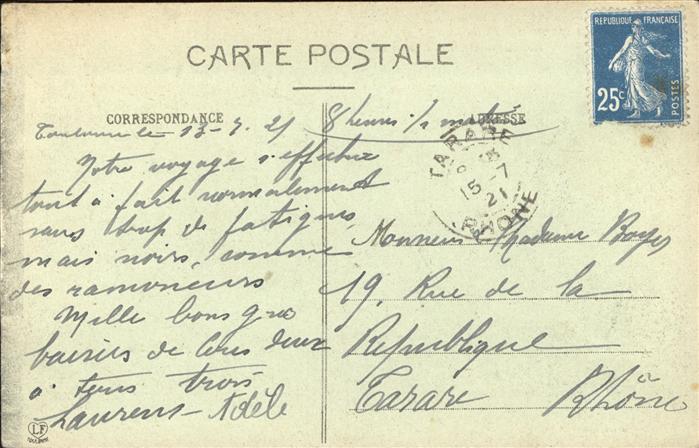 CARTE POSTALE
REPUBLIQUE FRANÇAISE
25c
POSTES
CORRESPONDANCE
ADRESSE
Toulouse le 13-7.21 8 heures 1/2 matin
TARARE
15-7
21
RHONE
Notre voyage s'effectue
tout à fait normalement
sans trop de fatigues,
mais noirs, comme
des ramoneurs
Mille bons gros
baisers de tous deux
à tous trois
Laurens - Adèle
Monsieur Madame Boyer
19, Rue de la
Republique
Tarare Rhône
LF